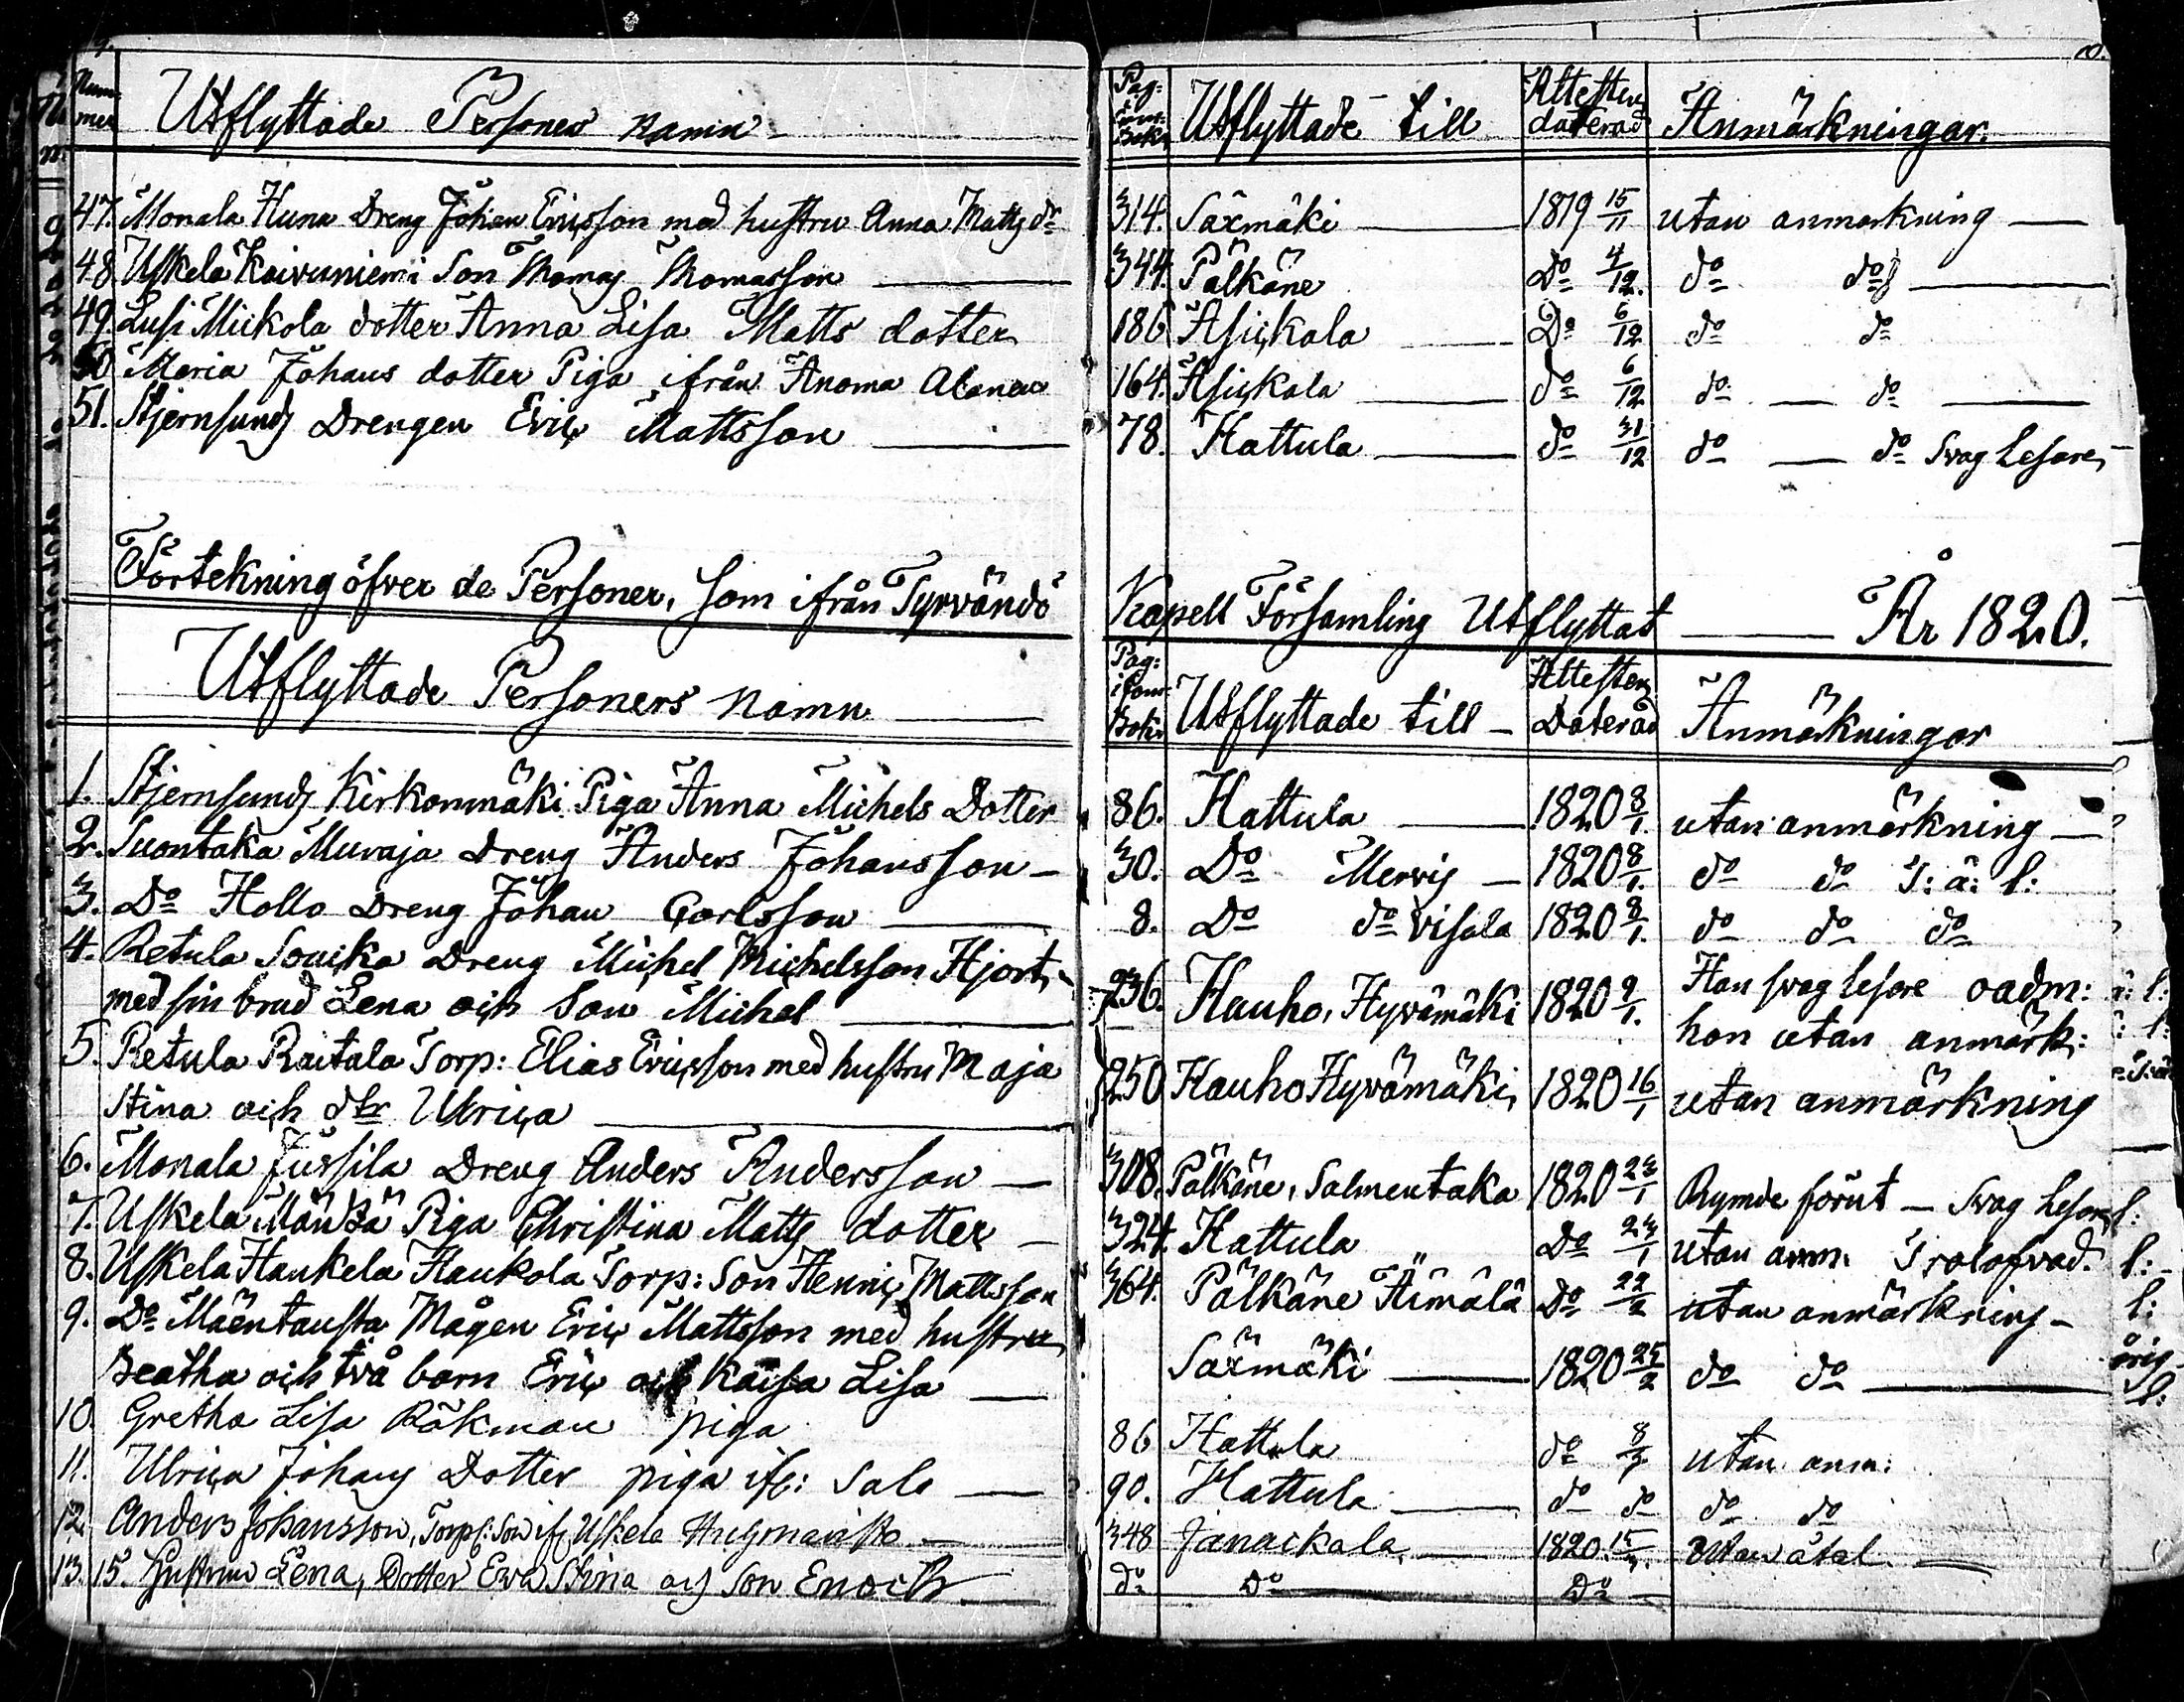 9.
Num-
mer
Utflyttade Personers namn
47. Monala Huna Dreng Johan Ericsson med hustru Anna Matts dr
48. Uskela Koivuniemi Son Thomas Thomasson
49. Lusi Mickola dotter Anna Lisa Matts dotter
50 Maria Johans dotter Piga ifrån Anoma
51. Stjernsunds Drengen Eric Mattsson
Förtekning öfver de Personer, som ifrån Tyrvändö
Utflyttade Personers namn
1. Stjernsunds Kirkonmäki Piga Anna Michels Dotter
2. Suontaka Muraja Dreng Anders Johansson
3. Do Hollo Dreng Johan Carlsson
4. Retula Dreng Michel Michelsson Hjort,
med sin brud Lena och Son Michel
5. Retula Raitala Torp: Elias Ericsson med hustru Maja
Stina och dtr Ulrica
6. Monala Jussila Dreng Anders Andersson
7. Uskela Piga Christina Matts dotter
8. Uskela Haukela Haukola Torp: Son Henric Mattsson
9. Do Mäentausta Mågen Eric Mattsson med hustru
Beatha och två barn Eric och Kaisa Lisa
10. Gretha Lisa Räkman piga
11. Ulrica Johans Dotter piga ifr: Salo
12. Anders Johansson, Torp: Son ifr Uskela
13. 15. Hustrun Lena, Dotter Ewa Stina och Son Enoch
10.
Pag:
i Com:
Bok:
Utflyttade till
Attesten
daterad
Anmärkningar.
314. Säxmäki 1819 15/11 utan anmärkning
344. Pälkäne Do 4/12. do do
186 Asickala Do 6/12 do do
164. Asickala do 6/12 do do
78. Hattula do 31/12 do do Svag Läsare
Kapell Församling Utflyttat År 1820.
Pag:
i Com:
Bok:
Utflyttade till
Attesten
Daterad
Anmärkningar
86. Hattula 1820 8/1. utan anmärkning
30. Do Mervis 1820 8/1. do do T: ä: l:
8. Do do Visala 1820 8/1. do do do
236. Hauho, Hyvämäki 1820 9/1. Han svag läsare oadm:
hon utan anmärk:
250 Hauho Hyvämäki, 1820 16/1 utan anmärkning
308. Pälkäne, Salmentaka 1820 23/1 Rymde förut — Svag Läsare
324. Hattula Do 24/1 utan anm. Trolofvad.
364. Pälkäne Äimälä Do 22/2 utan anmärkning
Säxmäki 1820 25/2 do do
86 Hattula do 8/3 utan anm:
90. Hattula do do do do
348 Janackala 1820. 15/3. Utan åtal
do Do Do